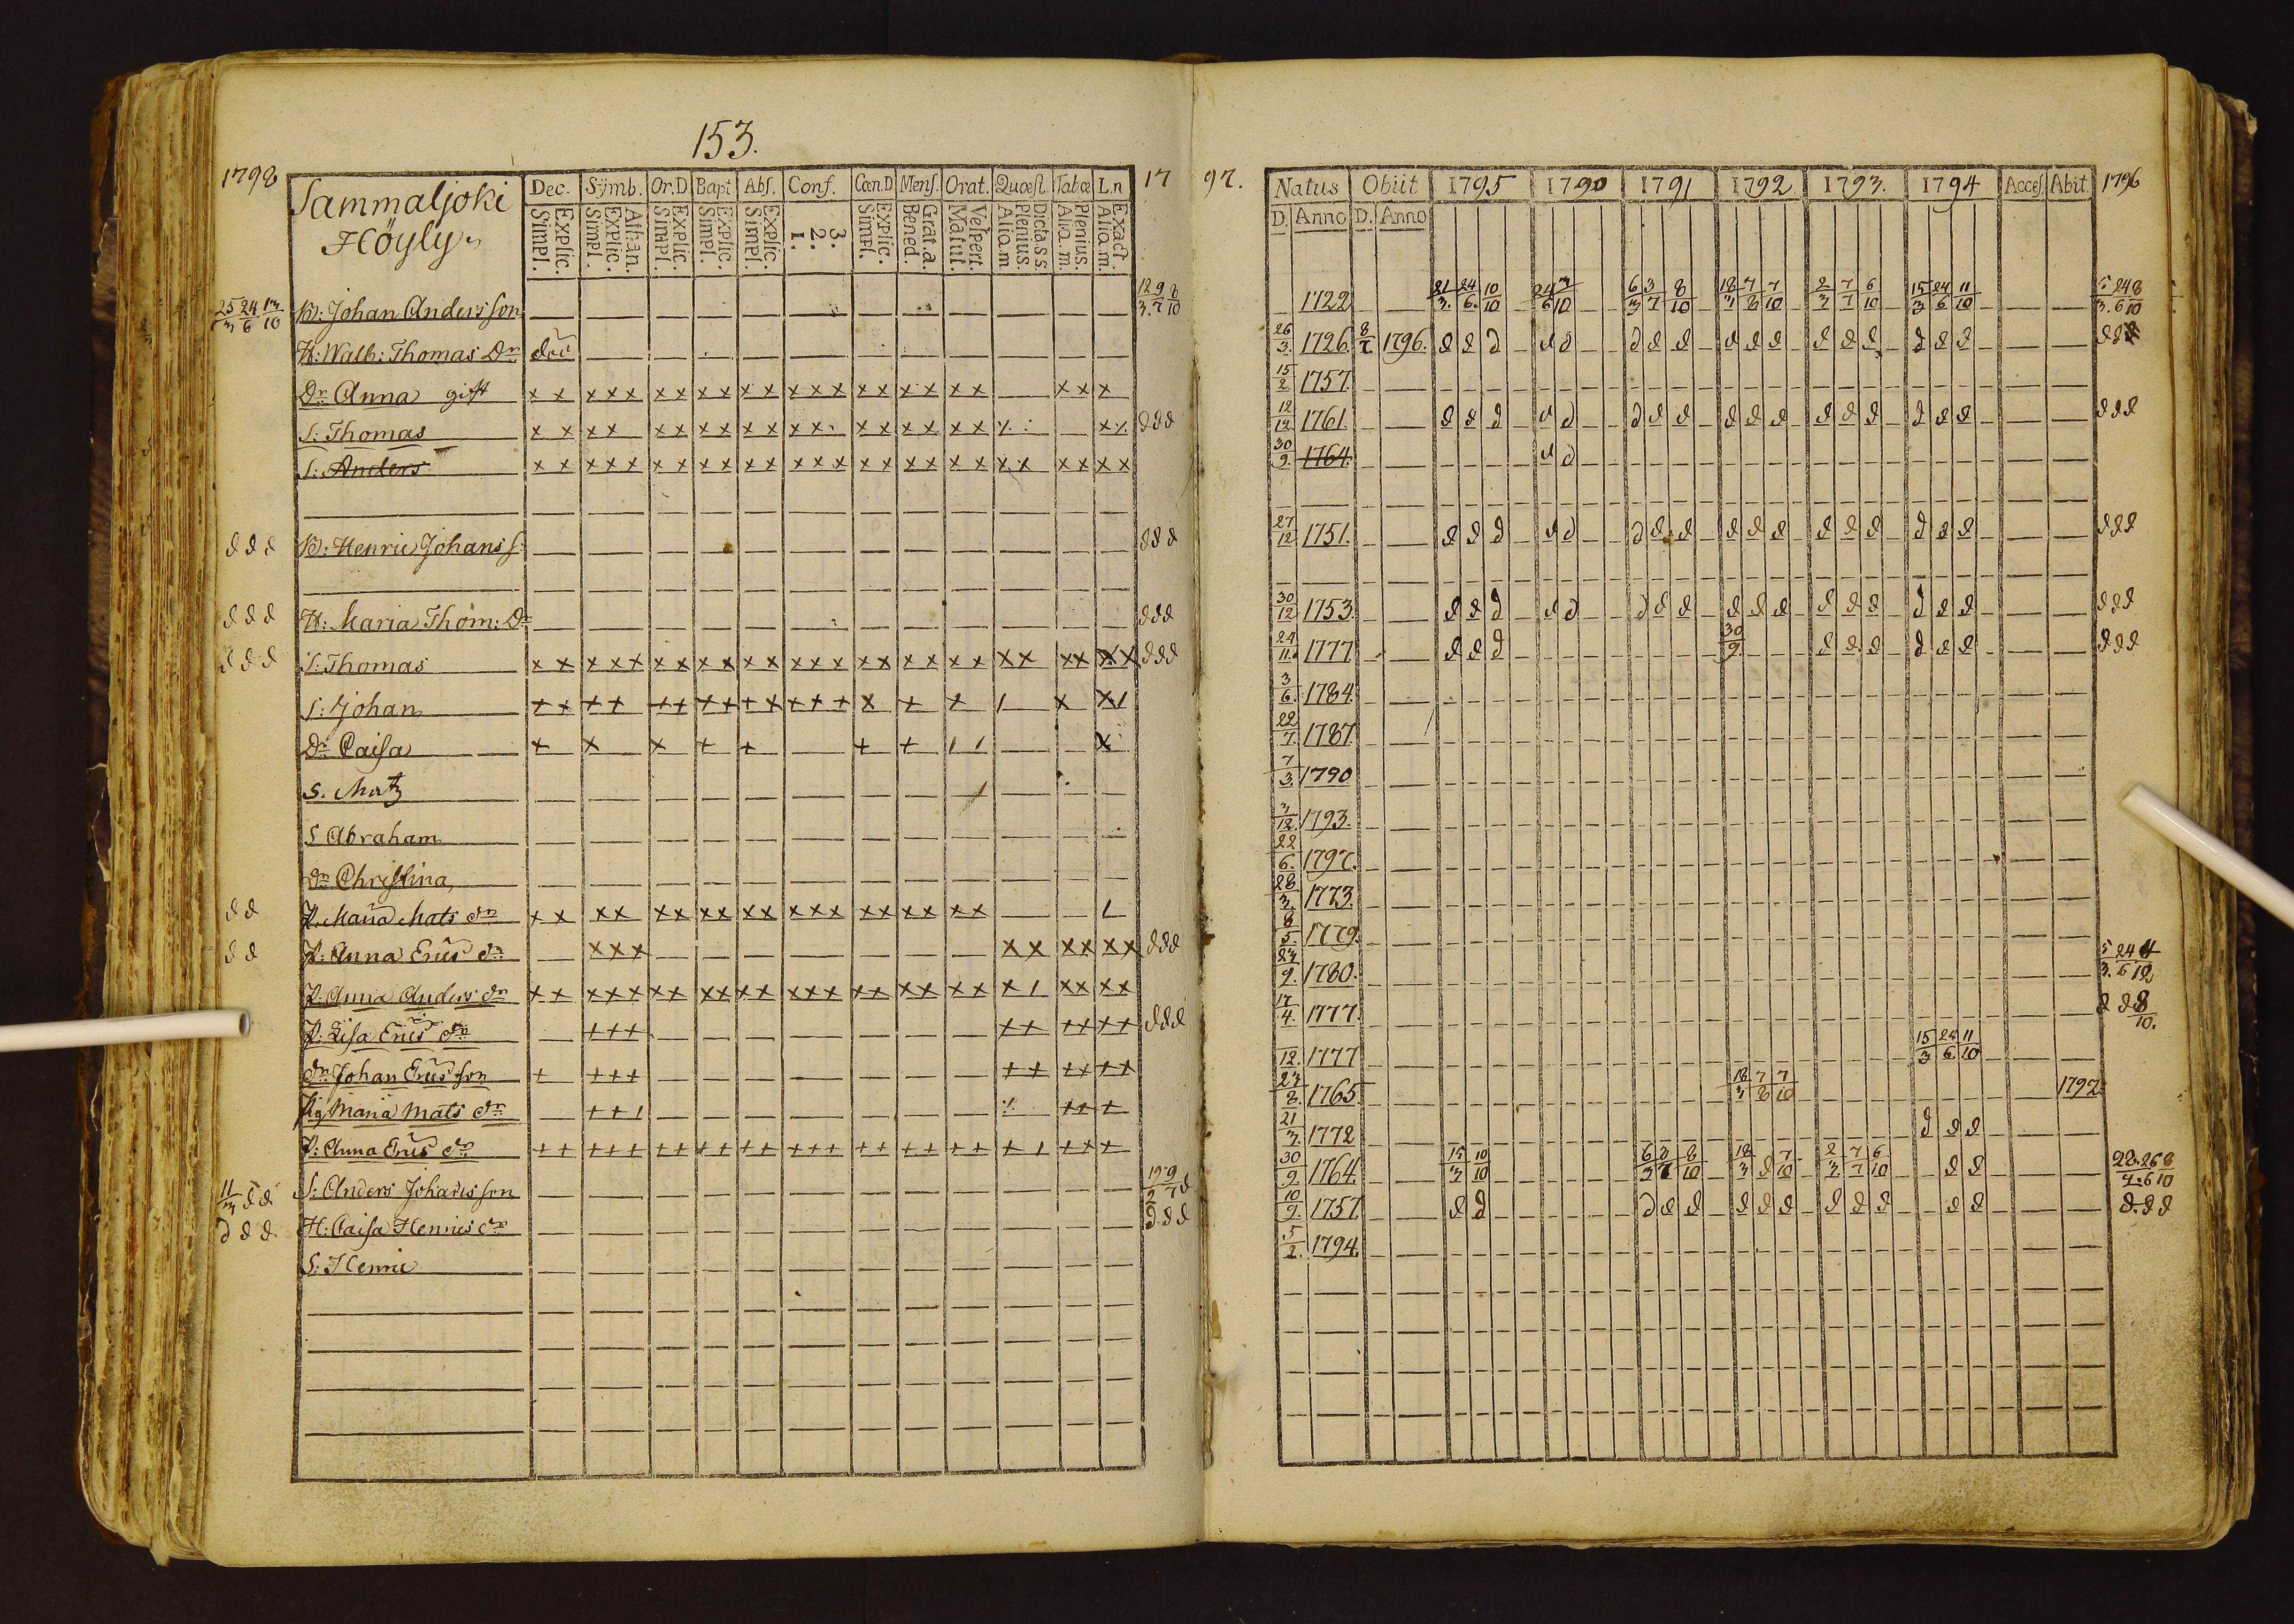 153.
1798
Sammaljoki
Höyly
Dec. Symb. Or.D Bapt Abs. Conf. Cœn.D Mens. Orat. Quæst. Tabœ L.n
Explic. Simpl. Athan. Explic. Simpl. Explic. Simpl. Explic. Simpl. Explic. Simpl. 3. 2. 1. Explic. Simpl. Grat.a. Bened. Vespert. Matut. Dicta.s.s. Plenius. Aliq.m Plenius. Aliq.m. Exact. Aliq.m.
17
25/3 24/6 13/10 B: Johan Andersson 12/3. 9/7 8/10
H: Walb: Thomas Dr
Dr Anna gift x x x x x x x x x x x x x x x x x x x x x x x x
S: Thomas d d d
S: Anders
d d d B: Henric Johans S. d d d
d d d H: Maria Thom: Dr d d d
d d d S: Thomas d d d
S: Johan
Dr Caisa
S. Matz
S Abraham
Dr Christina
d d P. Maria Mats dr
d d P: Anna Erics dr d d d
P. Anna Anders dr
P: Lisa Erics dr d d d
dr Johan Ericsson
Pig Maria Mats dr
P: Anna Erics dr
11/3 d d S: Anders Johansson
d d d H: Caisa Henrics dr d d d
S: Henric
97.
Natus Obiit 1795 1790 1791 1792 1793. 1794 Acces. Abit. 1796
D. Anno D. Anno
1722 21/3. 24/6. 10/10 6/3 3/7 8/10 18/3 7/8 7/10 2/3 7/7 6/10 15/3 24/6 11/10 5/3. 24/6 8/10
26/3. 1726. 8/7 1796. d d d d d d d d d d d d d d d d d
15/2 1757.
12/12 1761. d d d d d d d d d d d d d d d d d d d d
30/9. 1764. d d
27/12 1751. d d d d d d d d d d d d d d d d d d d d
30/12 1753. d d d d d d d d d d d d d d d d d d d d
24/11. 1777 d d d 30/9. d d d d d d d d d
3/6. 1784
22/7. 1787
7/3. 1790
3/12. 1793.
22/6. 1797.
28/3. 1773.
8/5. 1779.
23/9. 1780.
17/4. 1777.
12. 1777 15/3 24/6 11/10
23/8. 1765 18/3 7/8 7/10 1792.
21/3. 1772 d d d
30/9. 1764. 15/3 10/10 6/3 3/7 8/10 18/3 d 7/10 2/3 7/7 6/10 d d
10/9. 1757 d d d d d d d d d d d d d d. d d
5/2. 1794.